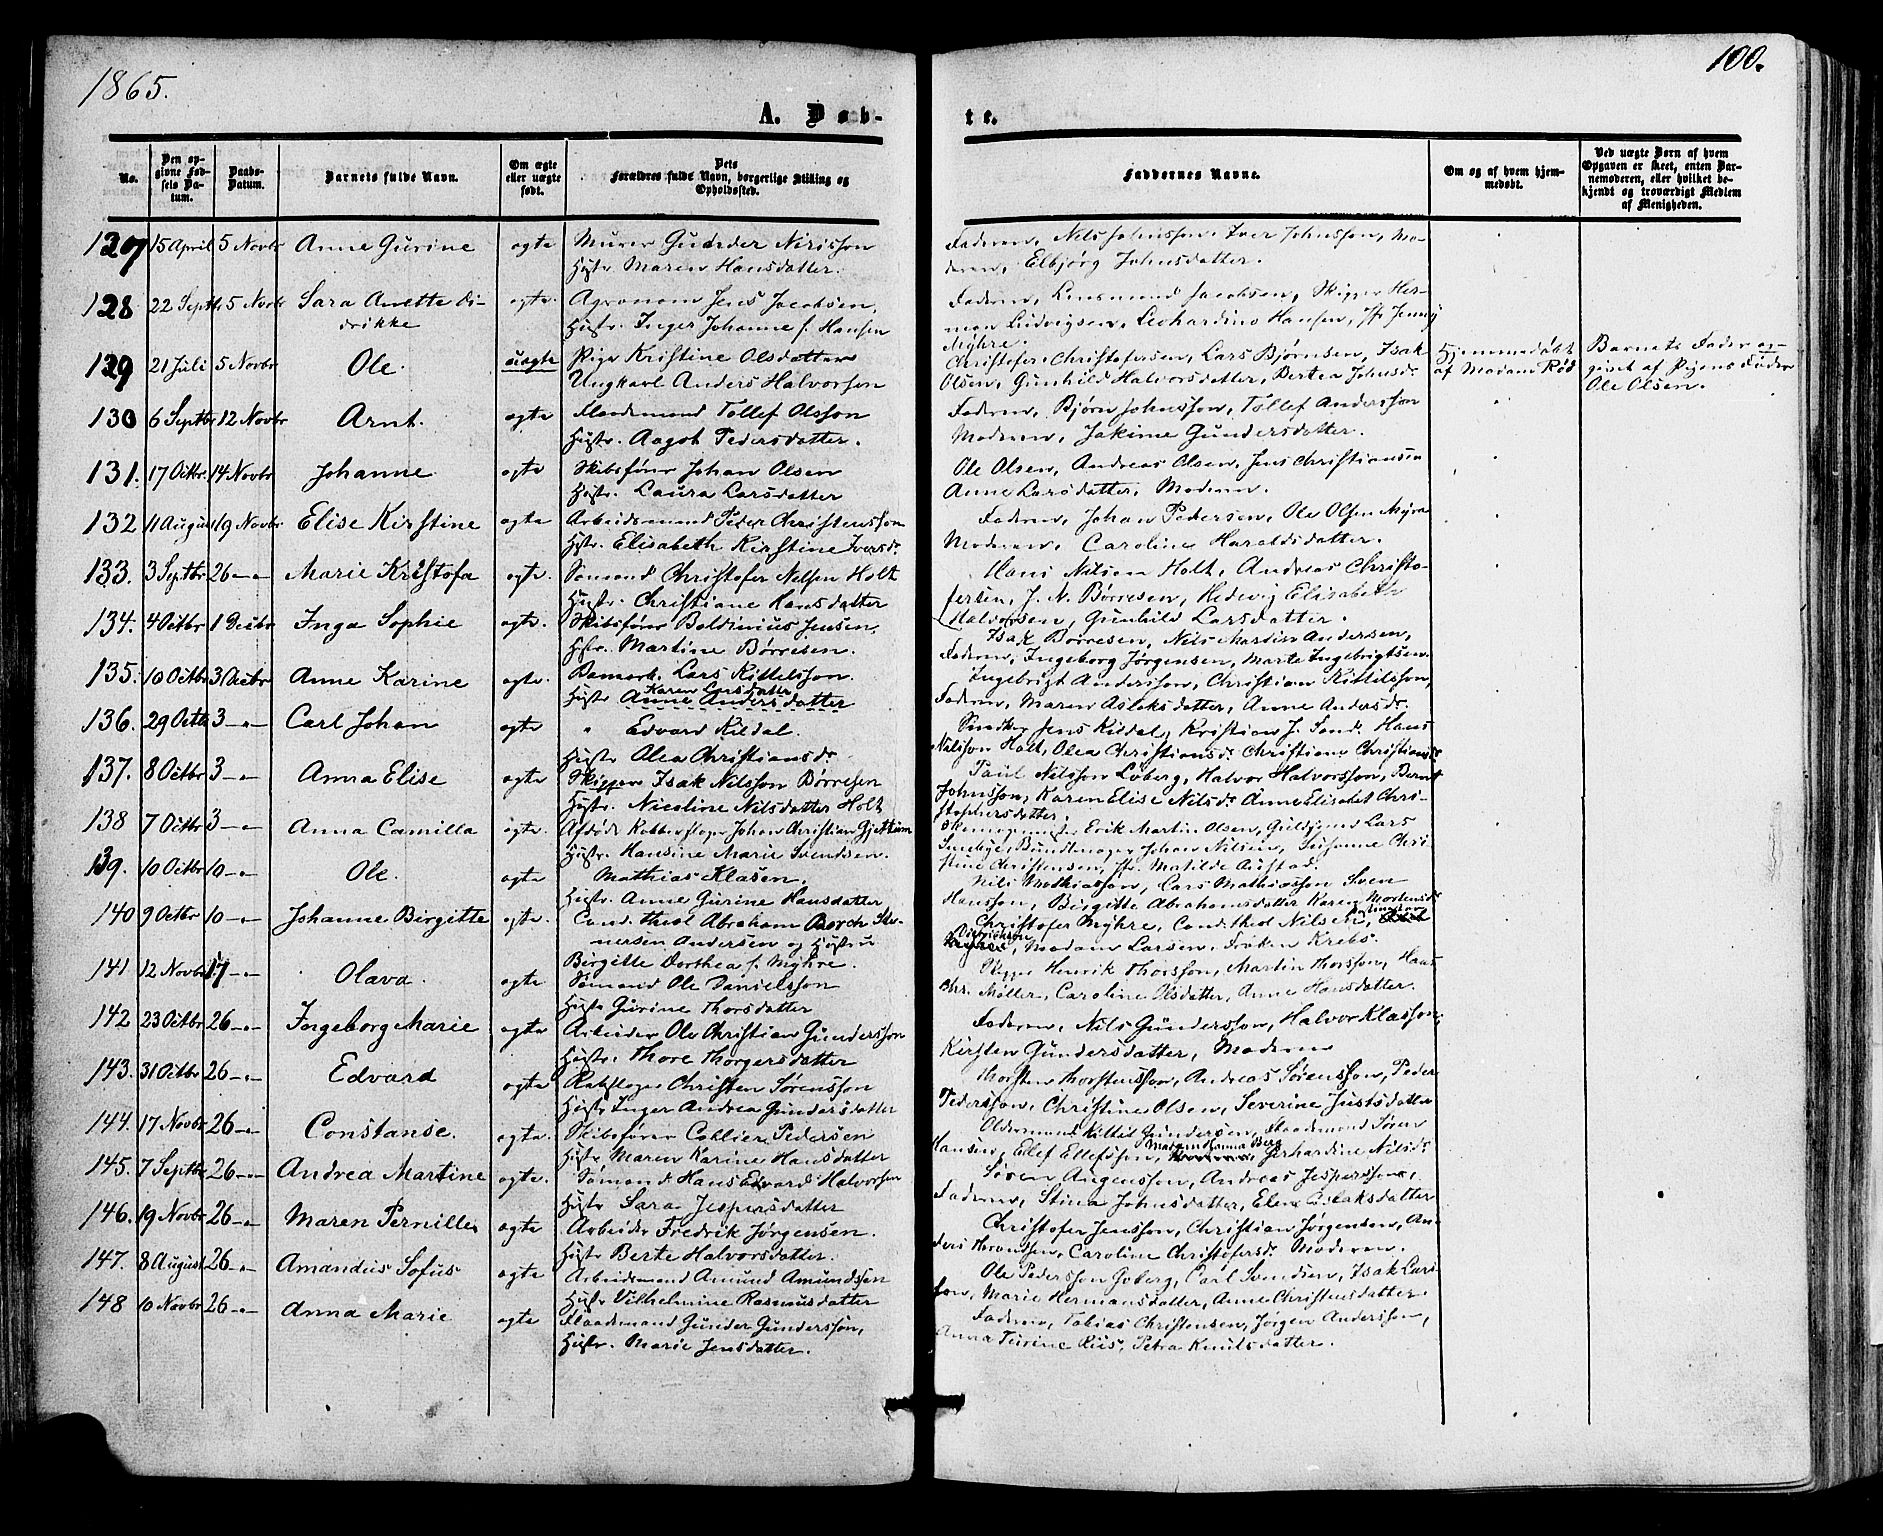 1865.
100.
A. Døb-
te.
No.
Den op-
givne Fød-
sels Da-
tum.
Daabs-
Datum.
Barnets fulde Navn.
Om ægte
eller uægte
født.
Dets
Forældres fulde Navn, borgerlige Stilling og
Opholdssted.
Faddernes Navne.
Om og af hvem hjem-
medøbt.
Ved uægte Børn af hvem
Opgaven er skeet, enten Bar-
nemoderen, eller hvilket be-
kjendt og troværdigt Medlem
af Menigheden.
127 15 April 5 Novbr Anne Gurine ægte Murer Gunder Nirisson
Hustr. Maren Hansdatter.
Faderen, Nils Johnsson, Iver Johnsson, Mo-
deren, Elbjørg Johnsdatter.
128 22 Septbr 5 Novbr Sara Anette Di- ægte. Agronom Jens Jacobsen,
drikke
Hustr. Inger Johanne f. Hansen
Faderen, Lensmand Jacobsen, Skipper Her-
man Ludvigsen, Leohardine Hansen, Jfr Jenny
Myhre.
129 21 Juli 5 Novbr Ole. uægte Pige Kristine Olsdatter
Ungkarl Anders Halvorsen
Christofer Christofersen, Lars Bjørnsen, Isak
Olsen, Gunhild Halvorsdatter, Bertea Johnsdr
Hjemmedøbt
af Madam Rød
Barnets Fader op-
givet af Pigens Fader
Ole Olsen.
130 6 Septbr 12 Novbr Arnt. ægte Flaademand Tollef Olsson
Hustr. Aagot Pedersdatter.
Faderen, Bjørn Johnsson, Tollef Andersson
Moderen, Jakime Gundersdatter.
131. 17 Octbr. 14 Novbr Johanne ægte Skibsfører Johan Olsen
Hustr. Laura Larsdatter
Ole Olsen, Andreas Olsen, Jens Christiansen
Anne Larsdatter, Moderen.
132 11 August 19 Novbr Elise Kirstine ægte Arbeidsmand Peder Christensson
Hustr. Elisabeth Kirstine Iversdr.
Faderen, Johan Pedersen, Ole Olsen Myra
Moderen, Caroline Haraldsdatter.
133. 3 Septbr 26 -"- Marie Kristofa ægte. Sømand Christofer Nilsen Holt
Hustr. Christiane Hansdatter
Hans Nilsen Holt, Andreas Christo-
fersen, J. N. Børresen, Hedevig Elisabeth
Halvorsen, Gunhild Larsdatter.
134. 4 Octbr 1 Decbr Inga Sophie ægte. Skibsfører Boldivius Jensen,
Hstr. Martine Børresen.
Isak Børresen, Nils Martin Andersen,
Faderen, Ingeborg Jørgensen, Marte Ingebrigtsen.
135. 10 Octbr 3 Decbr Anne Karine ægte. Lars Kittelsson.
Karen Larsdatter
Hustr Anne Andersdatter
Ingebrigt Andersson, Christian Kittilsson,
Faderen, Maren Aslaksdatter, Anne Andersdr.
136. 29 Octb 3 -"- Carl Johan ægte " Edvard Kildal.
Hustr Alea Christiansdr
Jens Kildal, Kristian J. Sand, Hans
Nilsson Holt, Olea Christiansdr. Christiane Christiansdr
137. 8 Octbr 3 -"- Anna Elise ægte Skipper Isak Nilsson Børresen
Hustr. Nicoline Nilsdatter Holt
Paul Nilsson Loberg, Halvor Halvorsson, Bernt
Johnsson, Karen Elise Nilsdr. Anne Elisabet Chri-
stophersdatter.
138 7 Octbr 3 -"- Anna Camilla ægte. Afdøde Kobberslager Johan Christian
Hustr. Hansine Marie Svendsen.
Skomagermester Erik Martin Olsen, Lars
Buntmager Johan Nilsen, Susanne Chri-
stine Christensen, Jfr. Matilde
139. 10 Octbr 10 -"- Ole. ægte Mathias Klasen.
Hustr. Anne Gurine Hansdatter
Nils Mathiasson, Lars Mathiasson Sven
Hansson, Birgitte Abrahamsdatter Karen Mortensdr
140 9 Octbr 10 -"- Johanne Birgitte ægte. Cand. theol Abraham Borch Ste-
nersen Andersen og Hustru
Birgitte Dorthea f. Myhre.
Christofer Myhre, Cand. theol Nilsen,
Madam Larsen, Frøken Krebs.
141 12 Novbr 17 -"- Olava. ægte Sømand Ole Danielsson
Hustr Gurine Thorsdatter
Skipper Henrik Thorsson, Martin Thorsson, Hans
Chr. Møller, Caroline Olsdatter, Anne Hansdatter.
142 23 Octbr 26 -"- Ingeborg Marie ægte Arbeider Ole Christian Gundersson
Hustr. Thore Thorgersdatter
Faderen, Nils Gundersson, Halvor Klasson,
Kirsten Gundersdatter, Moderen
143. 31 Octbr 26 -"- Edvard ægte Rebslager Christen Sørensson
Hustr Inger Andrea Gundersdatter
Thorsten Thorstensson, Andreas Sørensson, Peder
Pedersson, Christine Olsen, Severine Justsdatter
144. 17 Novbr 26 -"- Constanse. ægte. Skibsfører Collier Pedersen
Hustr Maren Karine Hansdatter
Oldermand Kittil Gundersen, Flaademand Søren
Hansen, Ellef Ellefsson, Madam Hanna Berg Gerhardine Nilsdr.
145. 7 Septbr 26 -"- Andrea Martine ægte. Sømand Hans Edvard Halvorsen
Hustr. Sara Jespersdatter
Søren Aagensson, Andreas Jespersson,
Faderen, Stina Johnsdatter, Elen Aslaksdatter
146. 19 Novbr 26 -"- Maren Pernille ægte Arbeider Fredrik Jørgensen.
Hustr Berte Halvorsdatter.
Christofer Jensson, Christian Jørgensen, An-
ders Caroline Christofersdr Moderen.
147. 8 August 26 -"- Amandus Sofus ægte Arbeidsmand Amund Amundsen
Hustr Vilhelmine Rasmusdatter
Ole Pedersson Goberg, Carl Svendsen, Isak Lars-
son, Marie Hermansdatter, Anne Christensdatter.
148 10 Novbr 26 -"- Anna Marie ægte Flaademand Gunder Gundersson,
Hustr. Marie Jensdatter.
Faderen, Tobias Christensen, Jørgen Andersson,
Anna Turine Riis, Petra Knutsdatter.